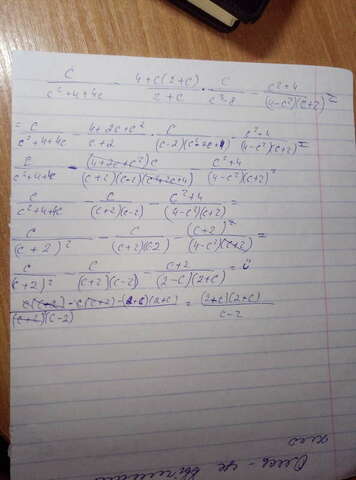 c/(c²+4+4c) - (4+c(2+c))/(2+c) · c/(c³-8) - (c²+4)/((4-c²)(c+2)) =
= c/(c²+4+4c) - (4+2c+c²)/(c+2) · c/((c-2)(c²+2c+4)) - (c²+4)/((4-c²)(c+2)) =
c/(c²+4+4c) - ((4+2c+c²)c)/((c+2)(c-2)(c²+2c+4)) - (c²+4)/((4-c²)(c+2)) =
c/(c²+4+4c) - c/((c+2)(c-2)) - (c²+4)/((4-c²)(c+2)) =
c/(c+2)² - c/((c+2)(c-2)) - (c+2)²/((4-c²)(c+2)) =
c/(c+2)² - c/((c+2)(c-2)) - (c+2)/((2-c)(2+c)) =
= ((2+c)(2+c))/(c-2)